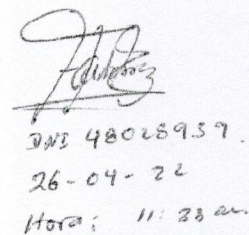 DNI 48028939.
26-04-22
Hora: 11:33 am.